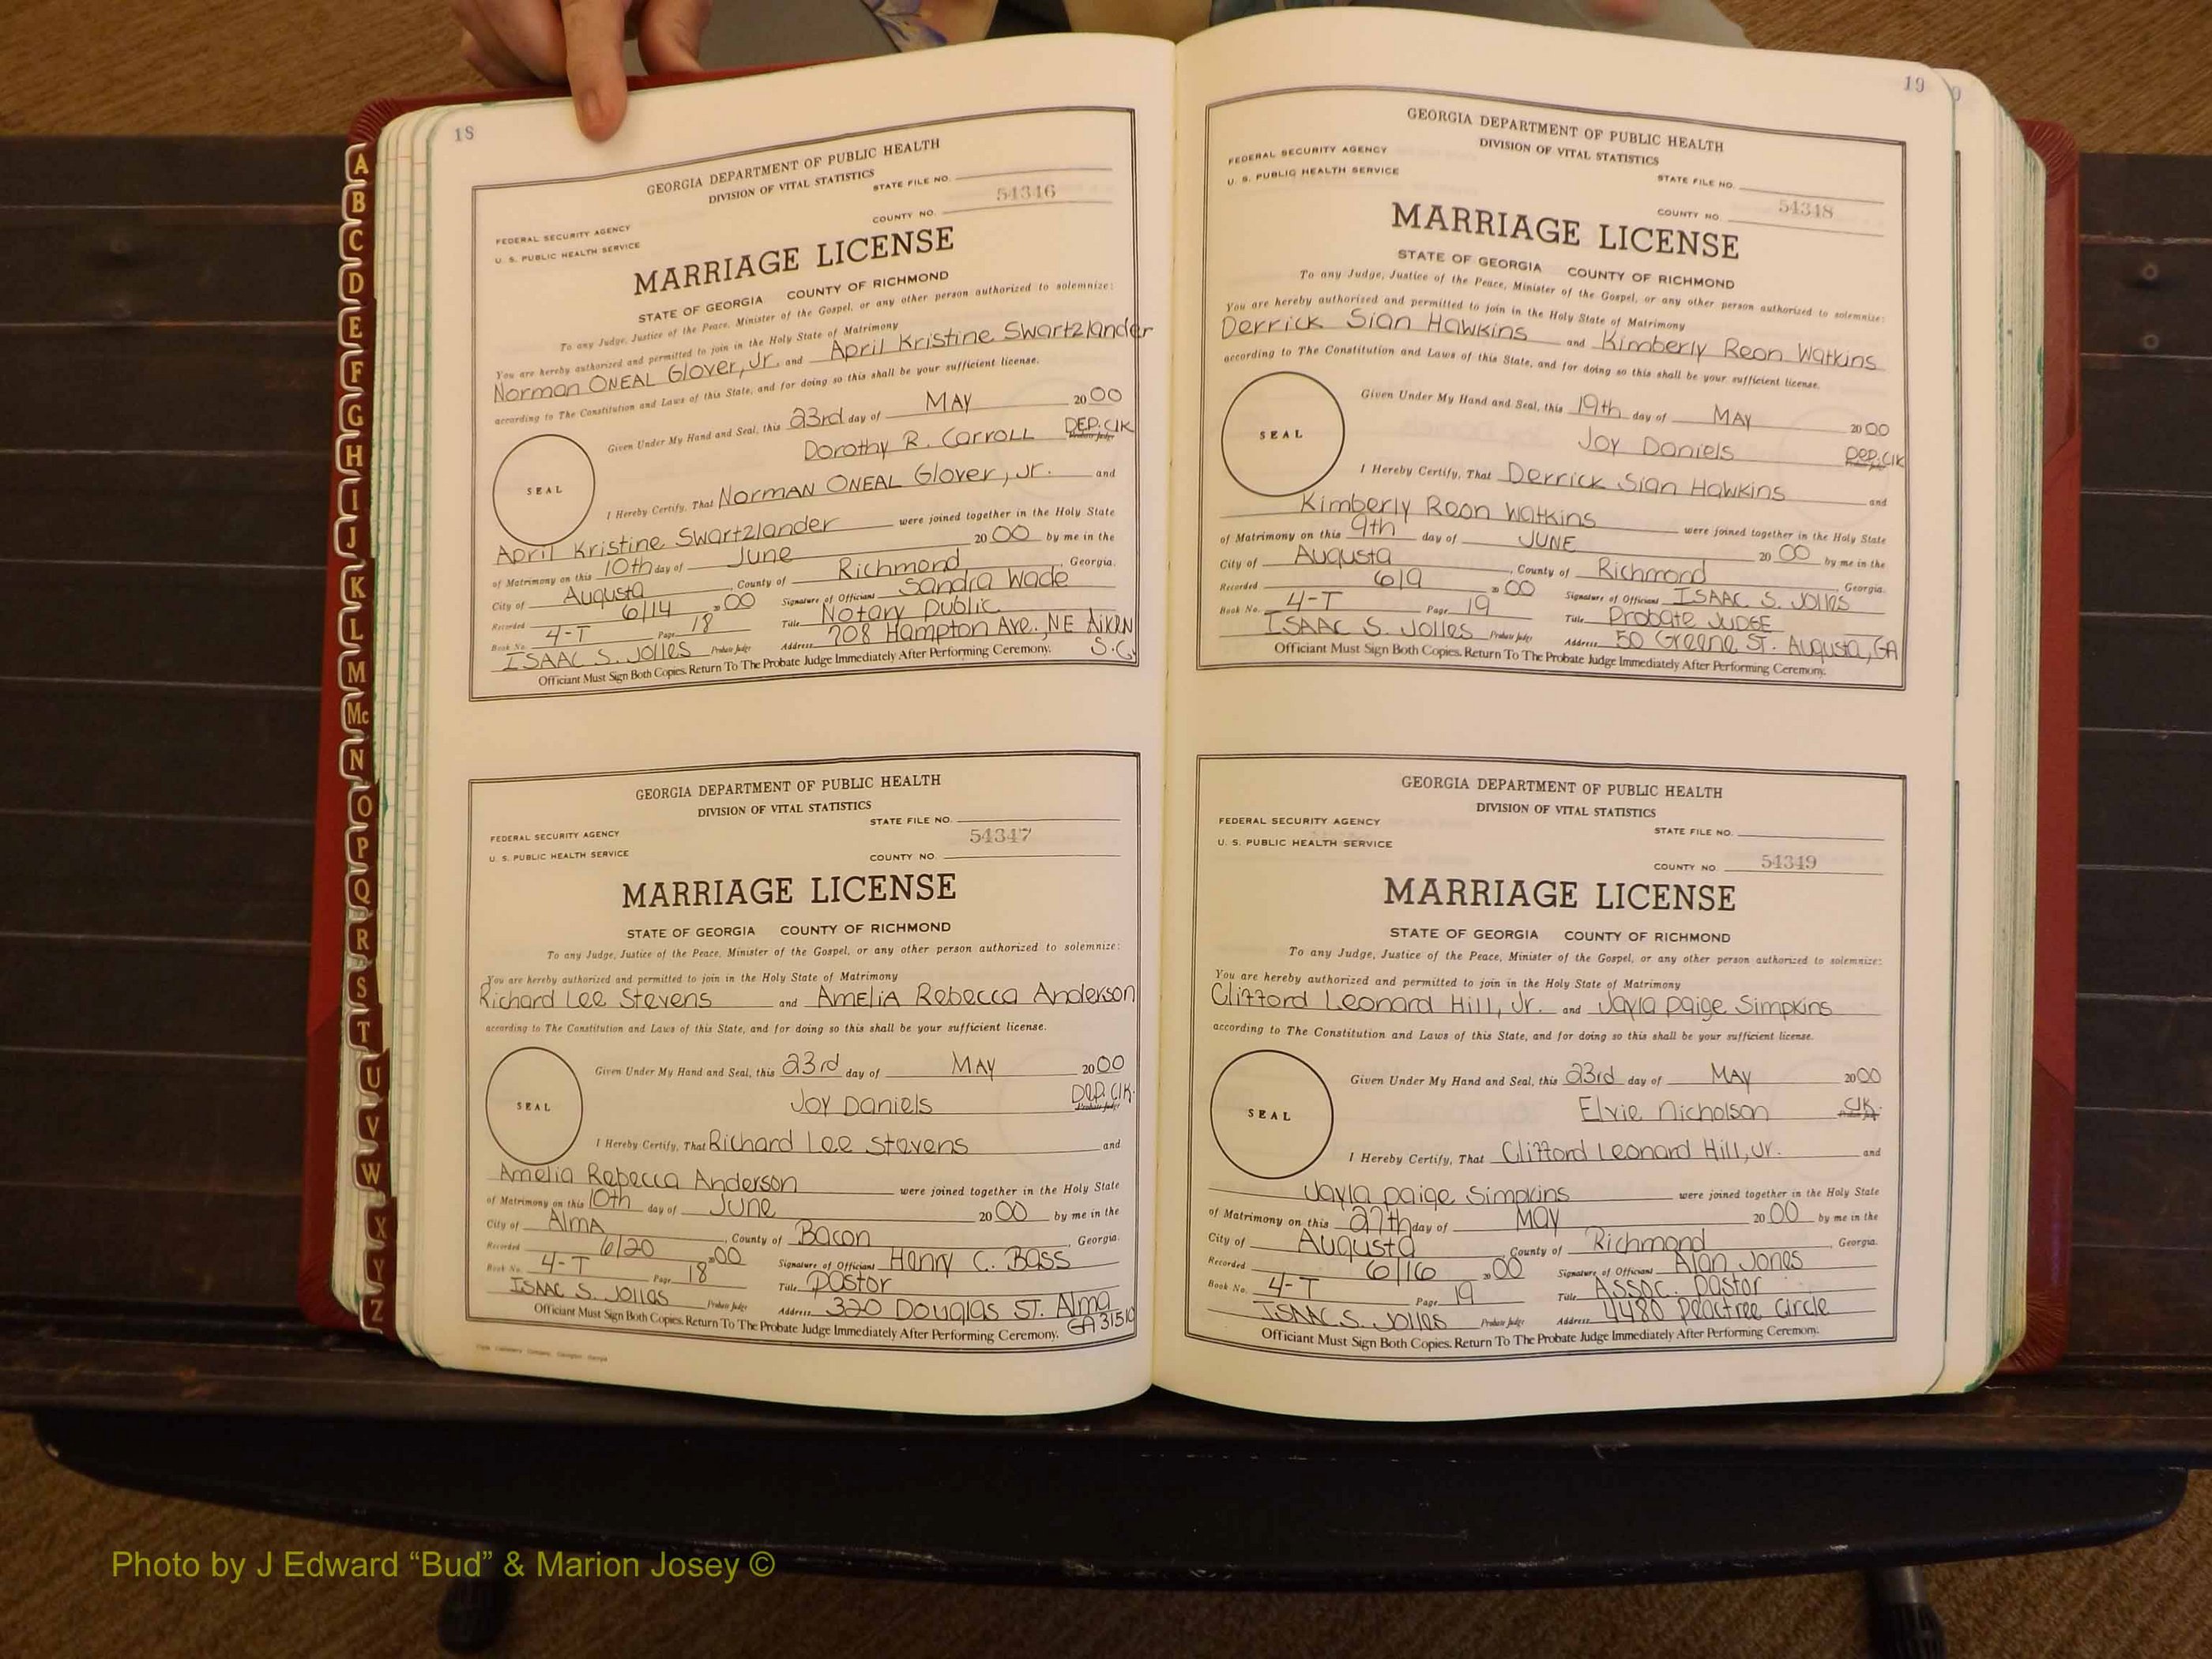 18
GEORGIA DEPARTMENT OF PUBLIC HEALTH
DIVISION OF VITAL STATISTICS
STATE FILE NO.
54346
COUNTY NO.
FEDERAL SECURITY AGENCY
U. S. PUBLIC HEALTH SERVICE
MARRIAGE LICENSE
STATE OF GEORGIA COUNTY OF RICHMOND
To any Judge, Justice of the Peace, Minister of the Gospel, or any other person authorized to solemnize:
You are hereby authorized and permitted to join in the Holy State of Matrimony
Norman ONEAL Glover, Jr. and April Kristine Swartzlander
according to The Constitution and Laws of this State, and for doing so this shall be your sufficient license.
Given Under My Hand and Seal, this 23rd day of MAY 2000
Dorothy R. Carroll DEP. Clk
SEAL
I Hereby Certify, That Norman ONEAL Glover, Jr. and
April Kristine Swartzlander were joined together in the Holy State
of Matrimony on this 10th day of June 2000 by me in the
City of Augusta County of Richmond, Georgia.
Recorded 6/14 2000 Signature of Officiant Sandra Wade
Book No. 4-T Page 18 Title Notary Public
ISAAC S. Jolles Probate Judge Address 708 Hampton Ave., NE Aiken S.C.
Officiant Must Sign Both Copies. Return To The Probate Judge Immediately After Performing Ceremony.
GEORGIA DEPARTMENT OF PUBLIC HEALTH
DIVISION OF VITAL STATISTICS
STATE FILE NO.
FEDERAL SECURITY AGENCY
54347
U. S. PUBLIC HEALTH SERVICE
COUNTY NO.
MARRIAGE LICENSE
STATE OF GEORGIA COUNTY OF RICHMOND
To any Judge, Justice of the Peace, Minister of the Gospel, or any other person authorized to solemnize:
You are hereby authorized and permitted to join in the Holy State of Matrimony
Richard Lee Stevens and Amelia Rebecca Anderson
according to The Constitution and Laws of this State, and for doing so this shall be your sufficient license.
Given Under My Hand and Seal, this 23rd day of MAY 2000
Joy Daniels Dep. Clk.
SEAL
I Hereby Certify, That Richard Lee Stevens and
Amelia Rebecca Anderson were joined together in the Holy State
of Matrimony on this 10th day of June 2000 by me in the
City of Alma, County of Bacon, Georgia.
Recorded 6/20 2000 Signature of Officiant Henry C. Bass
Book No. 4-T Page 18 Title Pastor
ISAAC S. Jolles Probate Judge Address 320 Douglas ST. Alma GA 31510
Officiant Must Sign Both Copies. Return To The Probate Judge Immediately After Performing Ceremony.
19
GEORGIA DEPARTMENT OF PUBLIC HEALTH
DIVISION OF VITAL STATISTICS
FEDERAL SECURITY AGENCY
U. S. PUBLIC HEALTH SERVICE
STATE FILE NO.
COUNTY NO. 54348
MARRIAGE LICENSE
STATE OF GEORGIA COUNTY OF RICHMOND
To any Judge, Justice of the Peace, Minister of the Gospel, or any other person authorized to solemnize:
You are hereby authorized and permitted to join in the Holy State of Matrimony
Derrick Sian Hawkins and Kimberly Reon Watkins
according to The Constitution and Laws of this State, and for doing so this shall be your sufficient license.
Given Under My Hand and Seal, this 19th day of MAY 2000
Joy Daniels Dep. Clk
SEAL
I Hereby Certify, That Derrick Sian Hawkins and
Kimberly Reon Watkins were joined together in the Holy State
of Matrimony on this 9th day of JUNE 2000 by me in the
City of Augusta, County of Richmond, Georgia.
Recorded 6/9 2000 Signature of Officiant ISAAC S. Jolles
Book No. 4-T Page 19 Title Probate JUDGE
ISAAC S. Jolles Probate Judge Address 50 Greene ST. Augusta, GA
Officiant Must Sign Both Copies. Return To The Probate Judge Immediately After Performing Ceremony.
GEORGIA DEPARTMENT OF PUBLIC HEALTH
DIVISION OF VITAL STATISTICS
FEDERAL SECURITY AGENCY
STATE FILE NO.
U. S. PUBLIC HEALTH SERVICE
COUNTY NO. 54349
MARRIAGE LICENSE
STATE OF GEORGIA COUNTY OF RICHMOND
To any Judge, Justice of the Peace, Minister of the Gospel, or any other person authorized to solemnize:
You are hereby authorized and permitted to join in the Holy State of Matrimony
Clifford Leonard Hill, Jr. and Jayla Paige Simpkins
according to The Constitution and Laws of this State, and for doing so this shall be your sufficient license.
Given Under My Hand and Seal, this 23rd day of MAY 2000
Elvie Nicholson Clk.
SEAL
I Hereby Certify, That Clifford Leonard Hill, Jr. and
Jayla Paige Simpkins were joined together in the Holy State
of Matrimony on this 27th day of MAY 2000 by me in the
City of Augusta, County of Richmond, Georgia.
Recorded 6/16 2000 Signature of Officiant Alan Jones
Book No. 4-T Page 19 Title Assoc. Pastor
ISAAC S. Jolles Probate Judge Address 4480 Peactree Circle
Officiant Must Sign Both Copies. Return To The Probate Judge Immediately After Performing Ceremony.
A
B
C
D
E
F
G
H
I
J
K
L
M
Mc
N
O
P
Q
R
S
T
U
V
W
X
Y
Z
Photo by J Edward “Bud” & Marion Josey ©